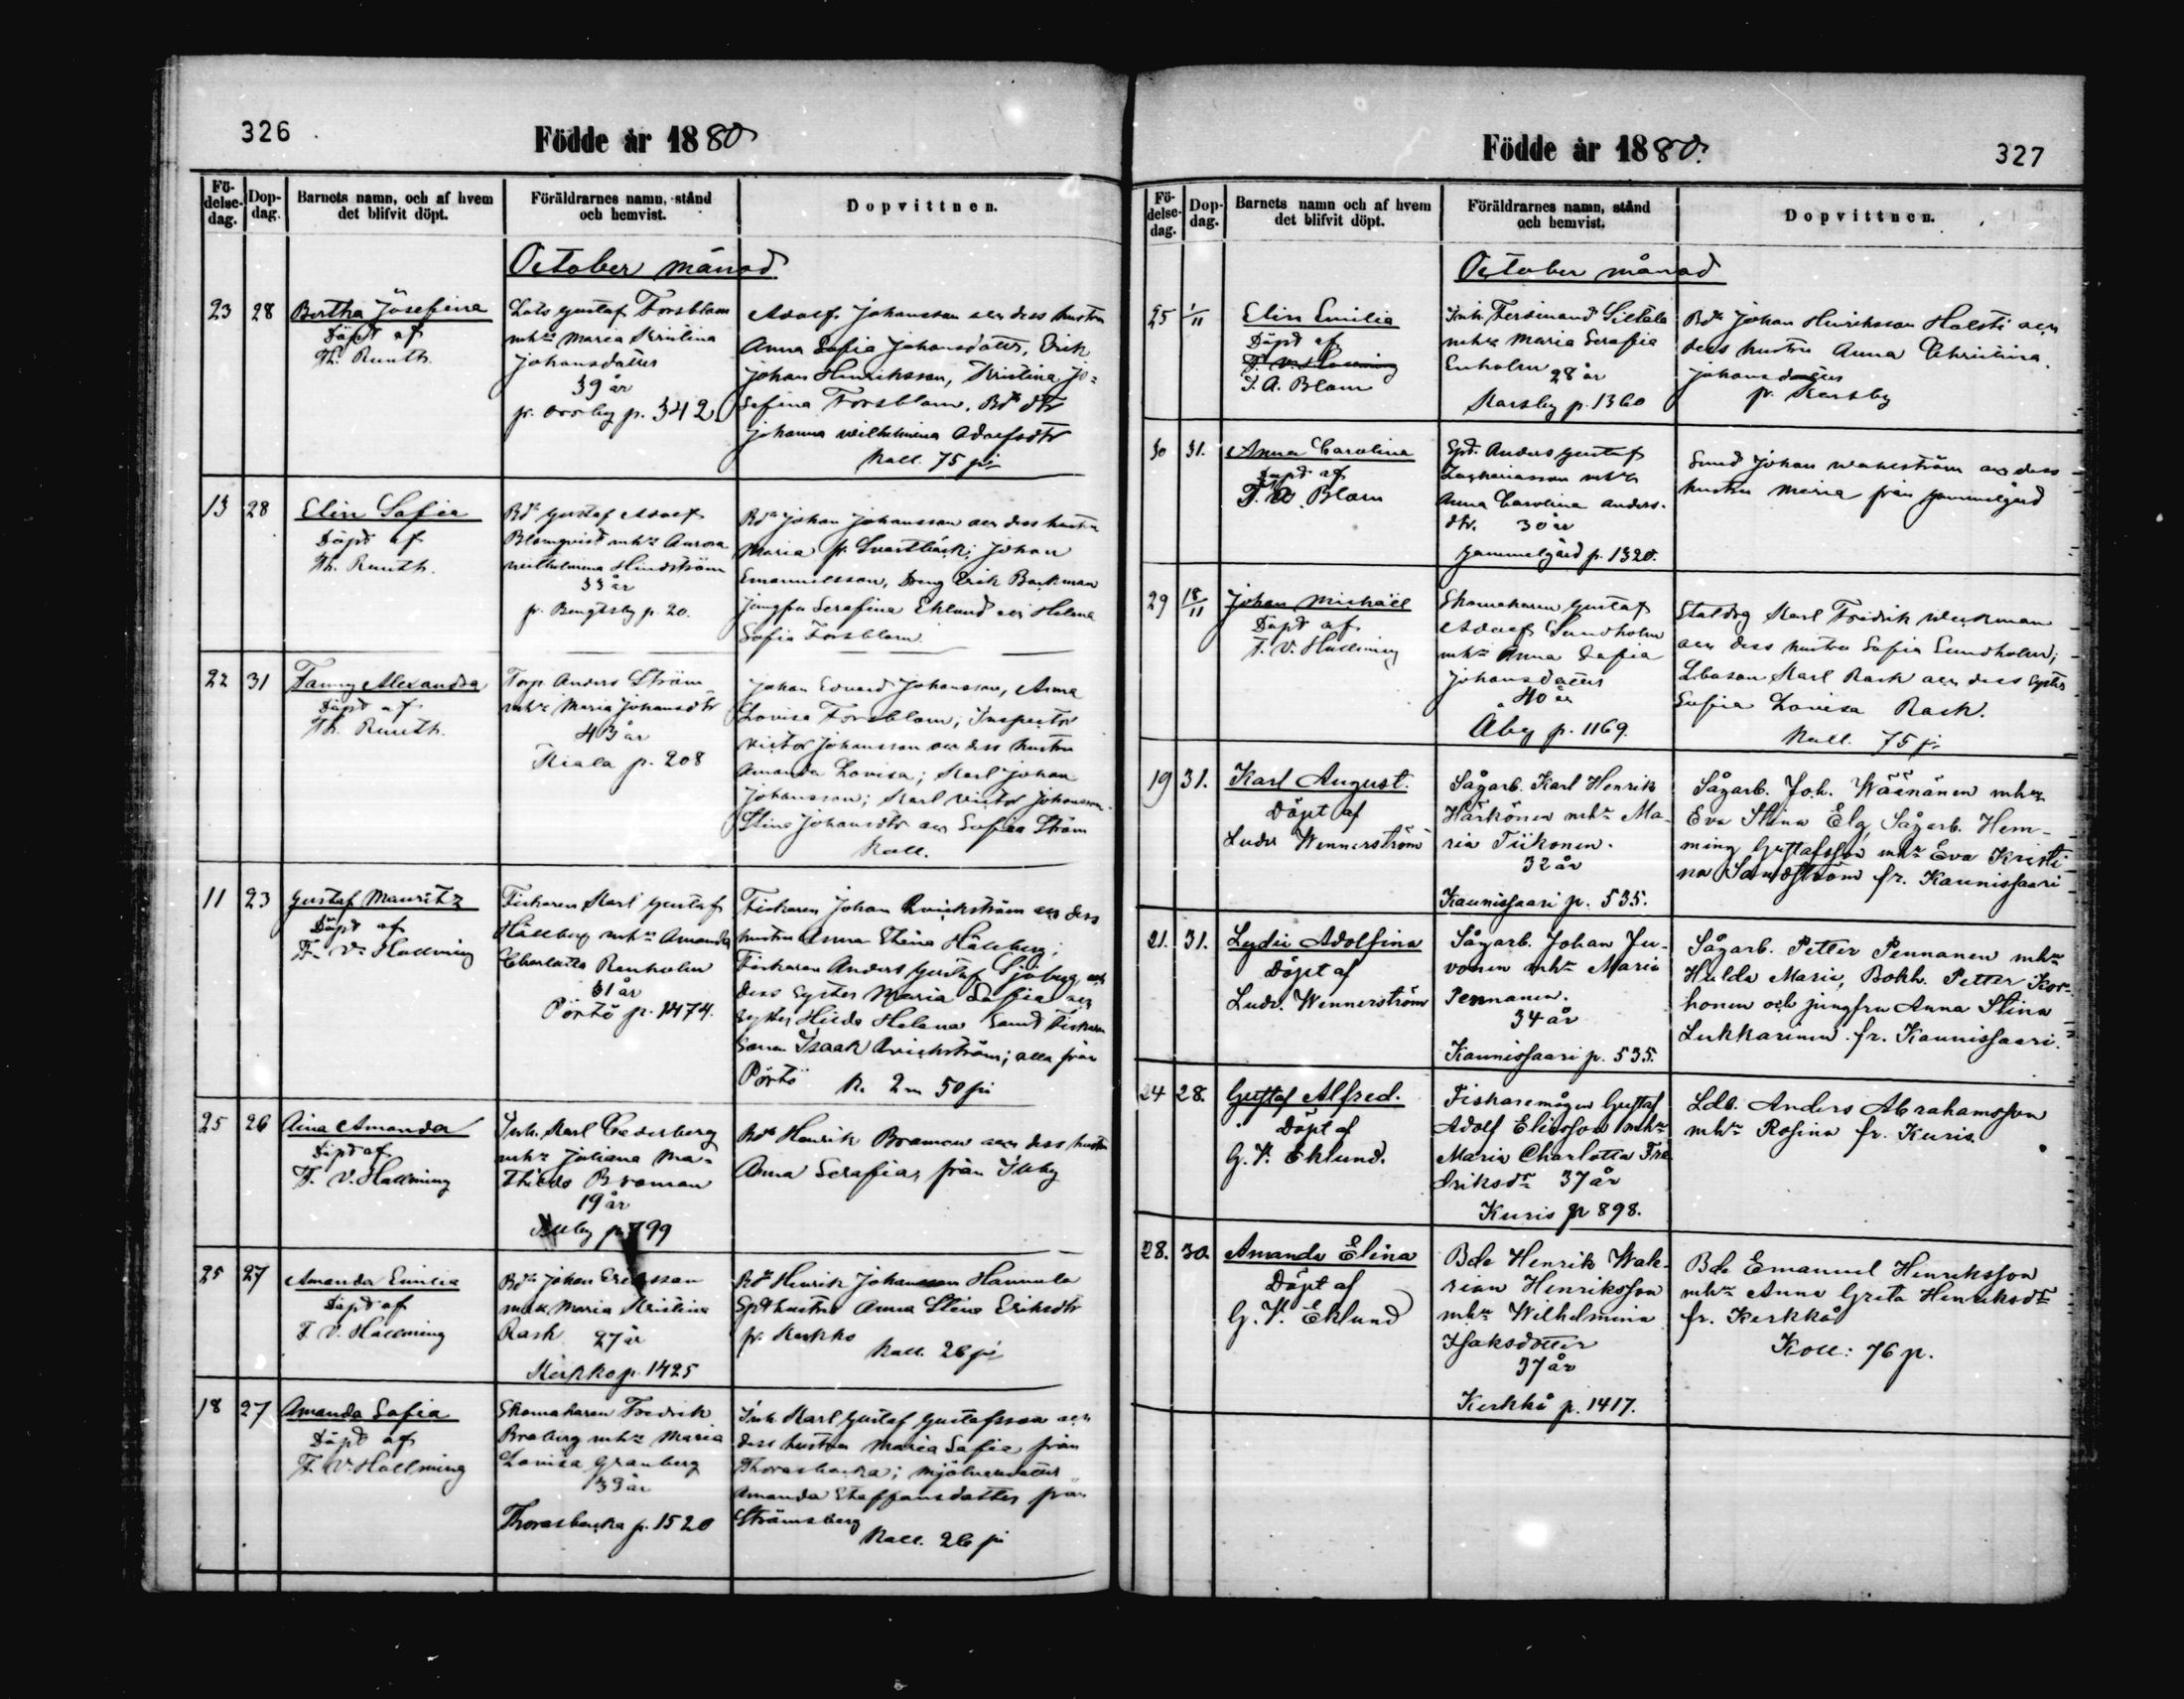 326
Födde år 1880
Fö-
delse-
dag.
Dop-
dag.
Barnets namn, och af hvem
det blifvit döpt.
Föräldrarnes namn, stånd
och hemvist.
Dopvittnen.
October månad
23
28
Bertha Josefina
Döpt af
Th. Ruuth.
Lots Gustaf Forsblom
mhu Maria Kristina
Johansdotter
39 år
p. 342
Adolf Johansson och dess hustru
Anna Sofia Johansdotter, Erik
Johan Henriksson, Kristina Jo-
sefina Forsblom, Bds dtr
Johanna Wilhelmina Adolfsdtr
Koll. 75 pi
13
28
Elin Sofia
Döpt af
Th. Ruuth.
Bdn Gustaf Adolf
Blomqvist mhu Aurora
Wilhelmina Lindström
33 år
fr. Bengtsby p. 20.
Bdn Johan Johansson och dess hustru
Maria fr. Svartbäck; Johan
Emanuelsson, Dreng Erik Backman
jungfru Serafina Eklund och Helena
Sofia Forsblom
22
31
Fanny Alexandra
Döpt af
Th. Ruuth.
Torp. Anders Ström
mhu Maria Johansdtr
43 år
Kiala p. 208
Johan Edvard Johansson, Anna
Lovisa Forsblom; Inspector
Victor Johansson och dess hustru
Amanda Lovisa; Karl Johan
Johansson; Karl Victor Johansson
Stina Johansdtr och Sofia Ström
Koll.
11
23
Gustaf Mauritz
Döpt af
F. V. Hallming
Fiskaren Karl Gustaf
Hällberg mhu Amanda
Charlotta Renholm
31 år
Pörtö p. 1474.
Fiskaren Johan Qvickström och dess
hustru Anna Stina Hällberg;
Fiskaren Anders Gustaf Sjöberg och
dess syster Maria Sofia och
syster Hilda Helena samt Fiskare
sonen Isaak Qvickström; alla från
Pörtö K. 2 m 50 pi
25
26
Aina Amanda
Döpt af
F. V. Hallming
Inh. Karl Cederberg
mhu Johana Ma-
thilda Broman
19 år
Illby p. 799
Bdn Henrik Broman och dess hustru
Anna Serafia, från Illby
25
27
Amanda Emilia
Döpt af
F. V. Hallming
Bdn Johan Ericsson
mhu Maria Kristina
Rask 27 år
Kerkko p. 1425
Bdn Henrik Johansson Hannula
Gpdhustru Anna Stina Eriksdtr
fr. Kerkko
Koll. 26 pi
18
27
Amanda Sofia
Döpt af
F. V. Hallming
Skomakaren Fredrik
Broberg mhu Maria
Lovisa Granberg
39 år
Thorasbacka p. 1520
Inh. Karl Gustaf Gustafsson och
dess hustru Maria Sofia från
Thorasbacka; mjölnaredotter
Amanda Staffansdotter från
Strömsberg
Koll. 26 pi
Födde år 1880.
327
Fö-
delse-
dag.
Dop-
dag.
Barnets namn och af hvem
det blifvit döpt.
Föräldrarnes namn, stånd
och hemvist.
Dopvittnen.
October månad
25
1/11
Elin Emilia
Döpt af
F. V. Hallming
F. A. Blom
Inh. Ferdinand Siltala
mhu Maria Serafia
Enholm 28 år
Karsby p. 1360
Bdn Johan Henriksson Holsti och
dess hustru Anna Christina
Johansdotter
fr. Karsby
30
31.
Anna Carolina
Döpt af
F. A. Blom
Gpd. Anders Gustaf
Zachariasson mhu
Anna Carolina Anders-
dtr. 30 år
Gammelgård p. 1320.
Smed Johan Wahlström och dess
hustru Maria från Gammelgård
29
18/11
Johan Michaël
Döpt af
F. V. Hallming
Skomakaren Gustaf
Adolf Sundholm
mhu Anna Sofia
Johansdotter
40 år
Åby p. 1169.
Staldrg Karl Fredrik Weckman
och dess hustru Sofia Sundholm;
Karl Rask och dess syster
Sofia Lovisa Rask.
Koll. 75 pi
19
31.
Karl August.
Döpt af
Ludv Wennerström
Sågarb. Karl Henrik
Härkönen mhu Ma-
ria Tiikonen.
32 år
Kaunissaari p. 535.
Sågarb. Joh. Wäänänen mhu
Eva Stina Elg, Sågarb. Hem-
ming Gustafsson mhu Eva Kristi-
na Sandström fr. Kaunissaari
21.
31.
Lydia Adolfina
Döpt af
Ludv. Wennerström
Sågarb. Johan Ju-
vonen mhu Maria
Pennanen.
34 år
Kaunissaari p. 535.
Sågarb. Petter Pennanen mhu
Hulda Maria, Bokh. Petter Kor-
honen och jungfru Anna Stina
Lukkarinen fr. Kaunissaari.
24
28.
Gustaf Alfred.
Döpt af
G. V. Eklund.
Fiskaremågen Gustaf
Adolf Eliasson mhu
Maria Charlotta Fre
driksdr 37 år
Kuris p 898.
Ldb. Anders Abrahamsson
mhu Rosina fr. Kuris
28.
30.
Amanda Elina
Döpt af
G. V. Eklund
Bde Henrik Wale-
rian Henriksson
mhu Wilhelmina
Isaksdotter
37 år
Kerkkå p. 1417.
Bde Emanuel Henriksson
mhu Anna Greta Henriksdr
fr. Kerkkå
Koll: 76 p.